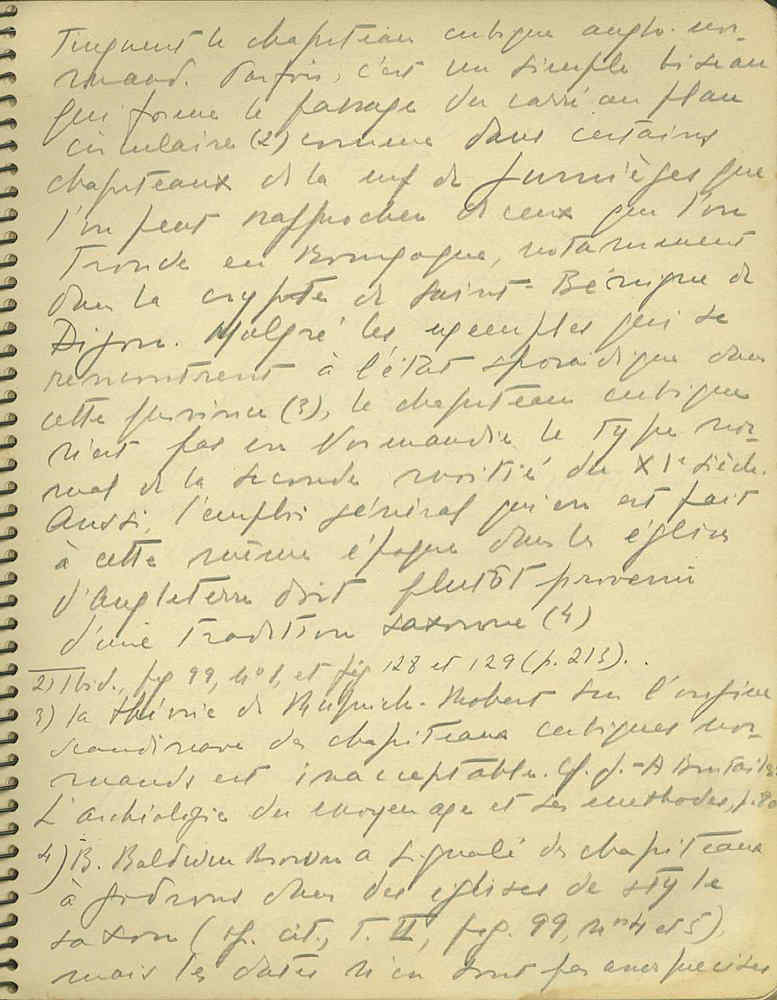 tinguent le chapiteau cubique anglo-nor-
mand. Parfois, c'est un simple biseau
qui forme le passage du carré au plan
circulaire (2) comme dans certains
chapiteaux de la nef de Jumièges que
l'on peut rapprocher de ceux que l'on
trouve en Bourgogne, notamment
dans la crypte de Saint-Bénigne de
Dijon. Malgré les exemples qui se
rencontrent à l'état sporadique dans
cette province (3), le chapiteau cubique
n'est pas en Normandie le type nor-
mal de la seconde moitié du XIe siècle.
Aussi, l'emploi général qui en est fait
à cette même époque dans les églises
d'Angleterre doit plutôt provenir
d'une tradition saxonne (4)
2) Ibid., fig 99, n° 1, et fig 128 et 129 (p. 213).
3) la théorie de Ruprich-Robert sur l'origine
scandinave des chapiteaux cubiques nor-
mands est inacceptable. Cf. J.-A Brutails
L'archéologie du moyen age et ses méthodes, p. 80
4) B. Baldwin Brown a signalé des chapiteaux
à godrons dans des églises de style
saxon (op. cit., T. II, fig. 99, nos 4 et 5),
mais les dates n'en sont pas assez précises